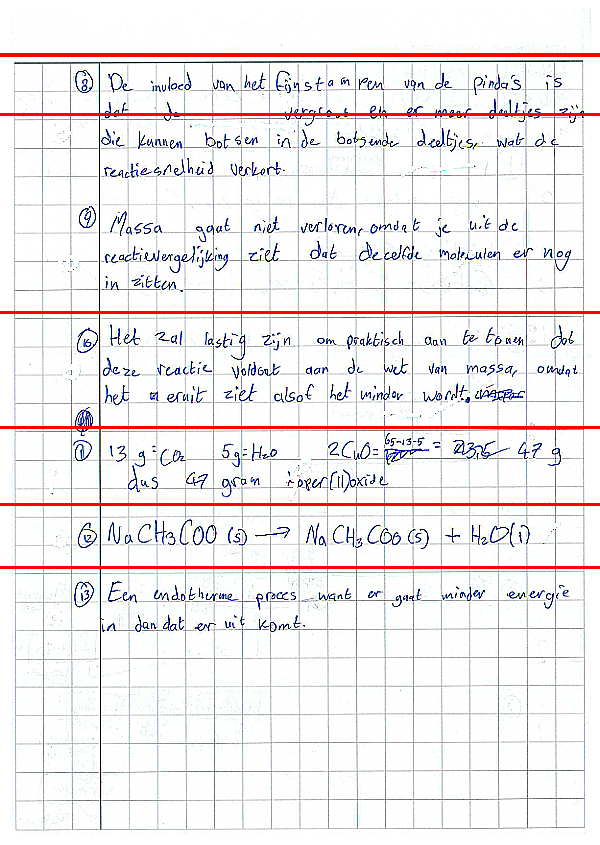 ⑧ De invloed van het fijnstampen van de pinda's is
dat de vergroot en er meer deeltjes zijn
die kunnen botsen in de botsende deeltjes, wat de
reactiesnelheid verkort.
⑨ Massa gaat niet verloren, omdat je uit de
reactievergelijking ziet dat dezelfde moleculen er nog
in zitten.
⑩ Het zal lastig zijn om praktisch aan te tonen dat
deze reactie voldoet aan de wet van massa, omdat
het eruit ziet alsof het minder wordt.
⑪ 13 g = CO2 5g = H2O 2CuO = 65-13-5 = 47 g
dus 47 gram koper(II)oxide
⑫ NaCH3COO (s) → NaCH3COO (s) + H2O(l)
⑬ Een endotherme proces want er gaat minder energie
in dan dat er uit komt.